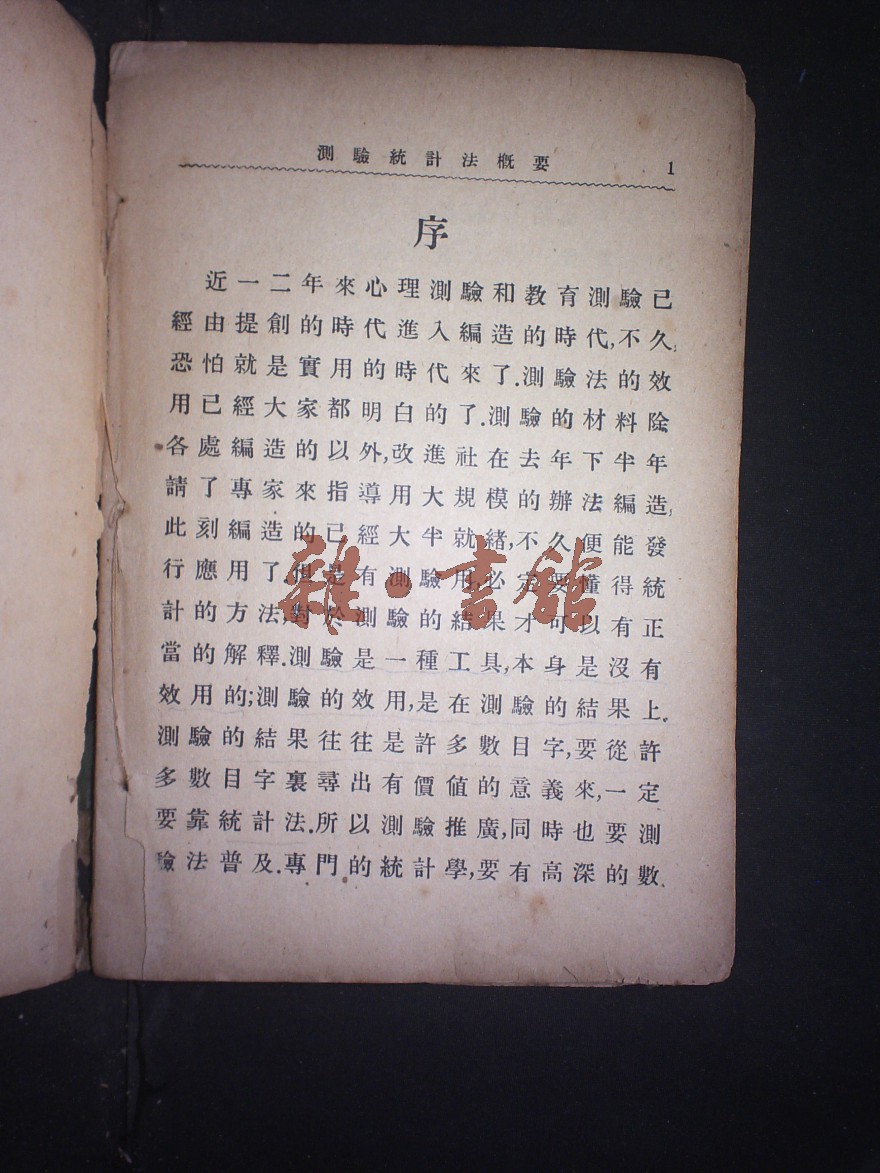 測驗統計法概要 1
序
近一二年來心理測驗和教育測驗已
經由提創的時代進入編造的時代,不久,
恐怕就是實用的時代來了.測驗法的效
用已經大家都明白的了.測驗的材料除
各處編造的以外,改進社在去年下半年
請了專家來指導用大規模的辦法編造,
此刻編造的已經大半就緒,不久便能發
行應用了.但是有測驗用,必定要懂得統
計的方法,對於測驗的結果才可以有正
當的解釋.測驗是一種工具,本身是沒有
效用的;測驗的效用,是在測驗的結果上.
測驗的結果往往是許多數目字,要從許
多數目字裏尋出有價值的意義來,一定
要靠統計法.所以測驗推廣,同時也要測
驗法普及.專門的統計學,要有高深的數
雜·書館